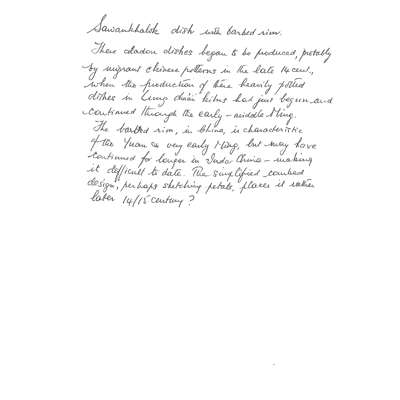 Sawankhalok dish with barbed rim.
These celadon dishes began to be produced, probably
by migrant chinese potters in the late 14 cent.,
when the production of these heavily potted
dishes in Lung chüan kilns had just begun and
continued through the early-middle Ming.
The barbed rim, in China, is characteristic
of the Yuan or very early Ming, but may have
continued for longer in Indo China – making
it difficult to date. The simplified combed
design, perhaps sketching petals, places it rather
later 14/15 century?